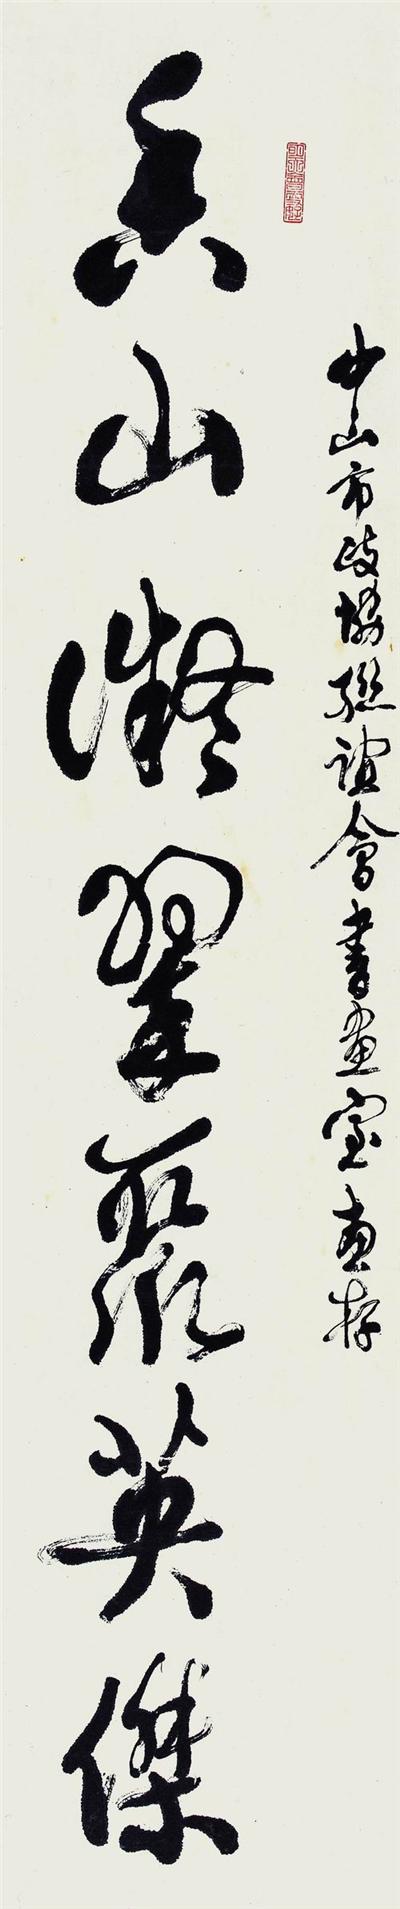 中山市政協聯誼會書畫室惠存
香山凝翠聚英傑